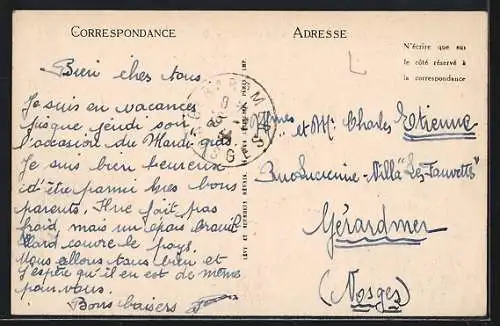 CORRESPONDANCE
ADRESSE
N'écrire que sur
le côté réservé à
la correspondance
Bien chers tous.
Je suis en vacances
jusque jeudi soir
l'occasion du Mardi-gras.
Je suis bien heureux
d'être parmi mes bons
parents. Il ne fait pas
froid, mais un épais brouil
lard couvre le pays.
Vous allons tous bien et
j'espère qu'il en est de même
pour vous.
Bons baisers
LÉVY ET NEURDEIN RÉUNIS
IMP.
Mmes et Mr Charles Etienne
Villa "Les Fauvettes"
Gérardmer
(Vosges)